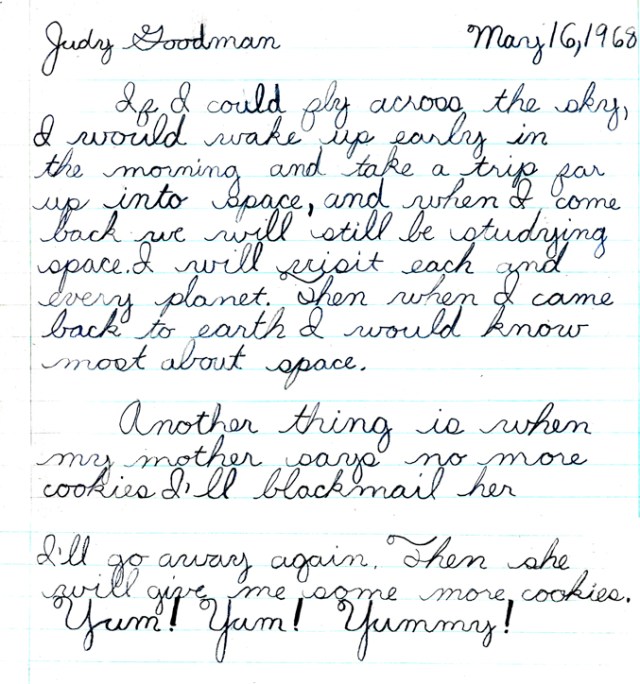 Judy Goodman May 16, 1968
If I could fly across the sky,
I would wake up early in
the morning and take a trip far
up into space, and when I come
back we will still be studying
space. I will visit each and
every planet. Then when I came
back to earth I would know
most about space.
Another thing is when
my mother says no more
cookies I'll blackmail her
I'll go away again. Then she
will give me some more cookies.
Yum! Yum! Yummy!